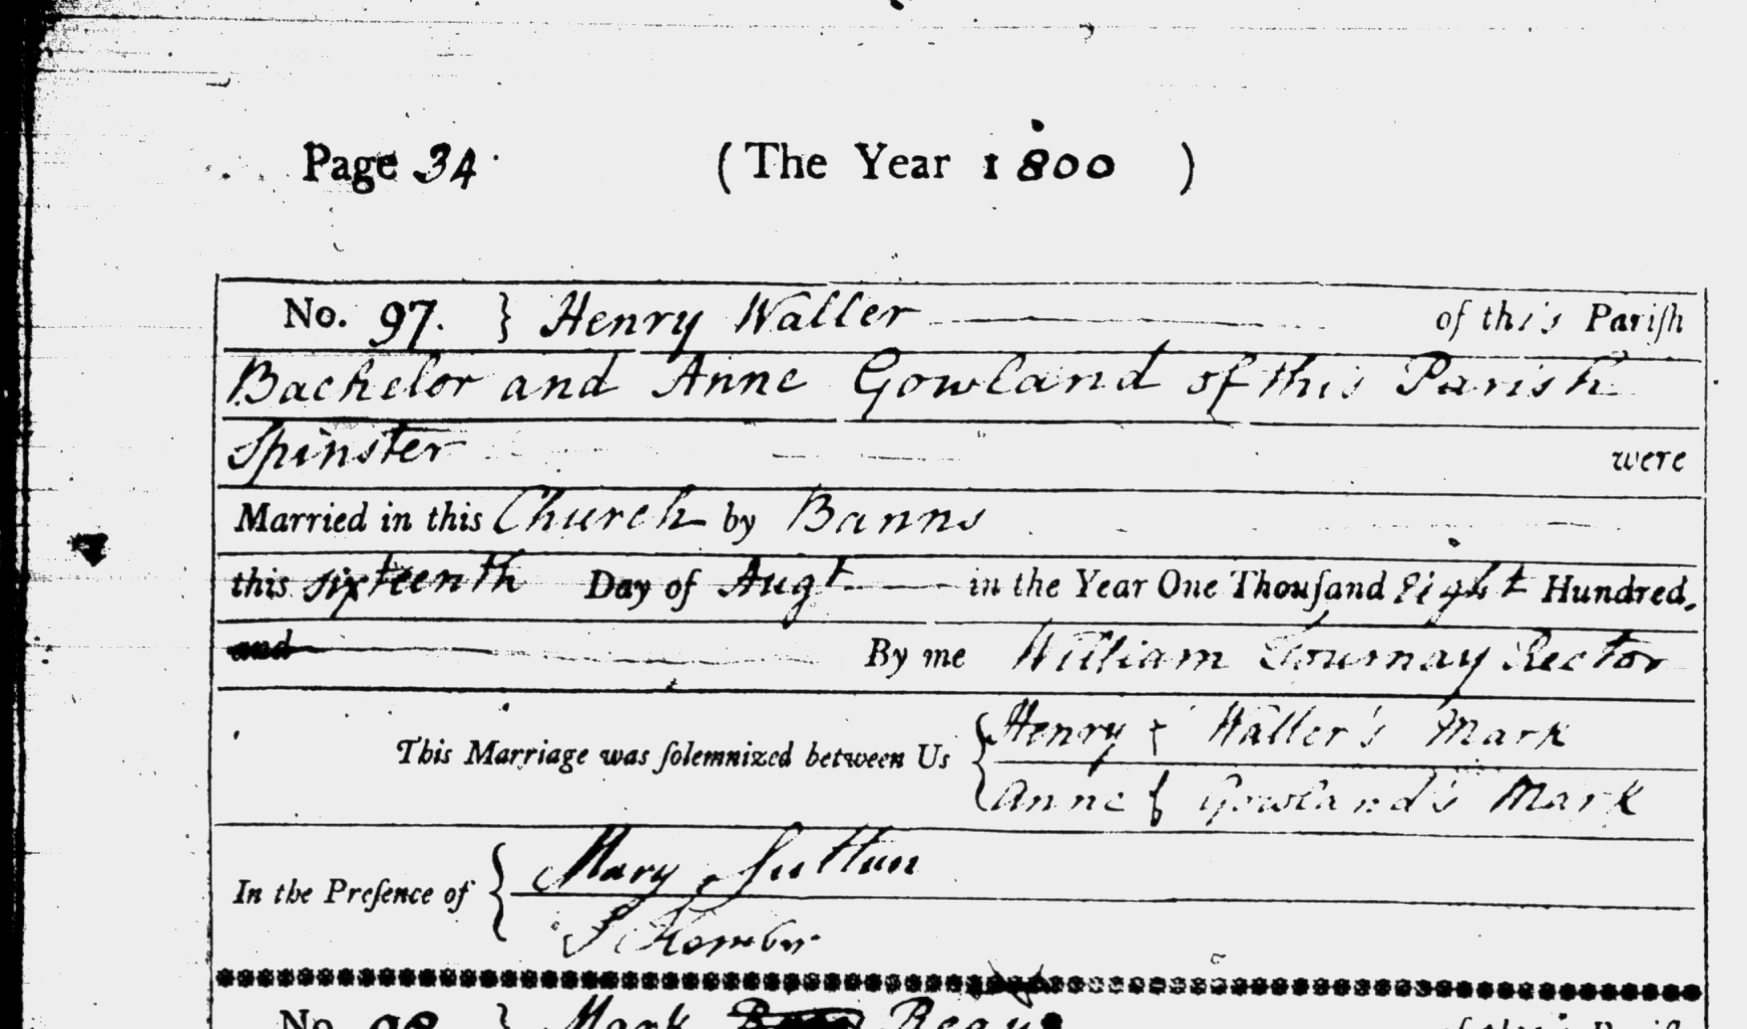 Page 34. (The Year 1800 )
No. 97. } Henry Waller of this Pariſh
Bachelor and Anne Gowland of this Parish
Spinster were
Married in this Church by Banns
this sixteenth Day of Augt in the Year One Thouſand eight Hundred.
and By me William Tournay Rector
This Marriage was ſolemnized between Us { Henry + Waller's Mark
Anne Gowland's Mark
In the Preſence of { Mary Sutton
No. 98 } Mark